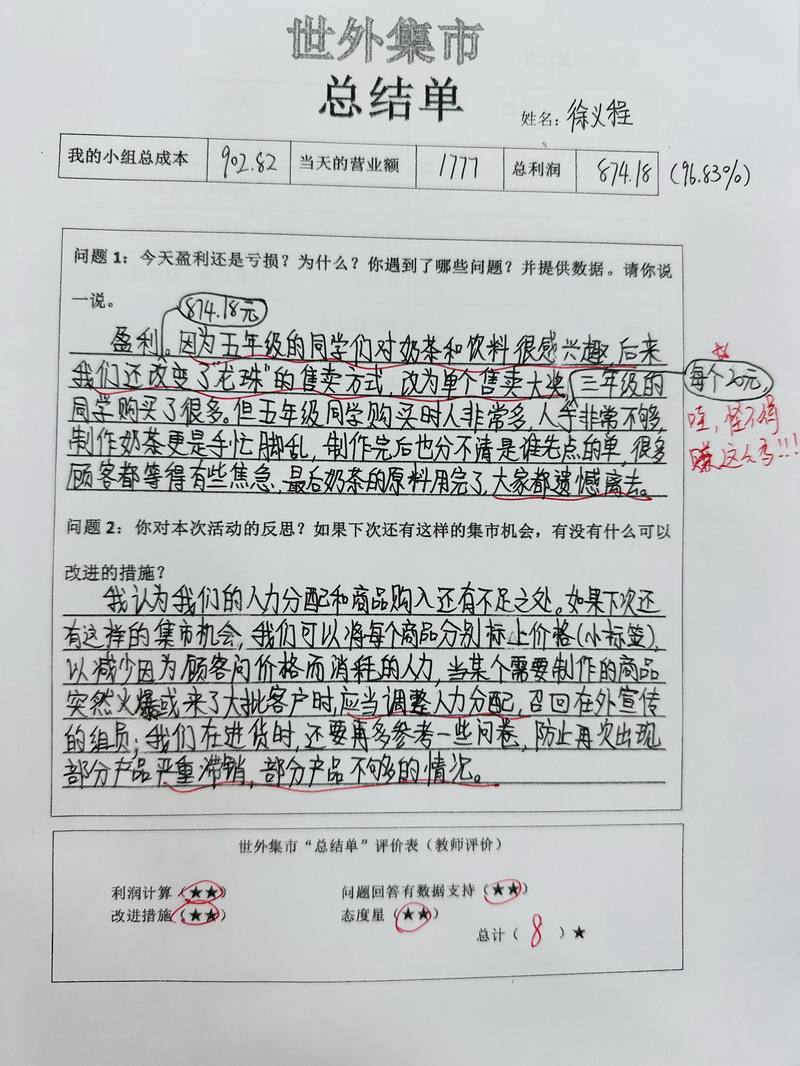 世外集市
总结单
姓名：徐义程
我的小组总成本 902.82 当天的营业额 1777 总利润 874.18 (96.83%)
问题 1：今天盈利还是亏损？为什么？你遇到了哪些问题？并提供数据。请你说
一说。
874.18元
盈利。因为五年级的同学们对奶茶和饮料很感兴趣，后来
我们还改变了“龙珠”的售卖方式，改为单个售卖大奖，三年级的
每个20元，
同学购买了很多。但五年级同学购买时人非常多，人手非常不够，
哇，怪不得
制作奶茶更是手忙脚乱，制作完后也分不清是谁先点的单，很多
赚这么高!!!
顾客都等得有些焦急，最后奶茶的原料用完了，大家都遗憾离去。
问题 2：你对本次活动的反思？如果下次还有这样的集市机会，有没有什么可以
改进的措施？
我认为我们的人力分配和商品购入还有不足之处。如果下次还
有这样的集市机会，我们可以将每个商品分别标上价格(小标签)，
以减少因为顾客问价格而消耗的人力，当某个需要制作的商品
突然火爆或来了大批客户时，应当调整人力分配，召回在外宣传
的组员；我们在进货时，还要再多参考一些问卷，防止再次出现
部分产品严重滞销，部分产品不够多的情况。
世外集市“总结单”评价表（教师评价）
利润计算（★★） 问题回答有数据支持（★★）
改进措施（★★） 态度星（★★）
总计（ 8 ）★